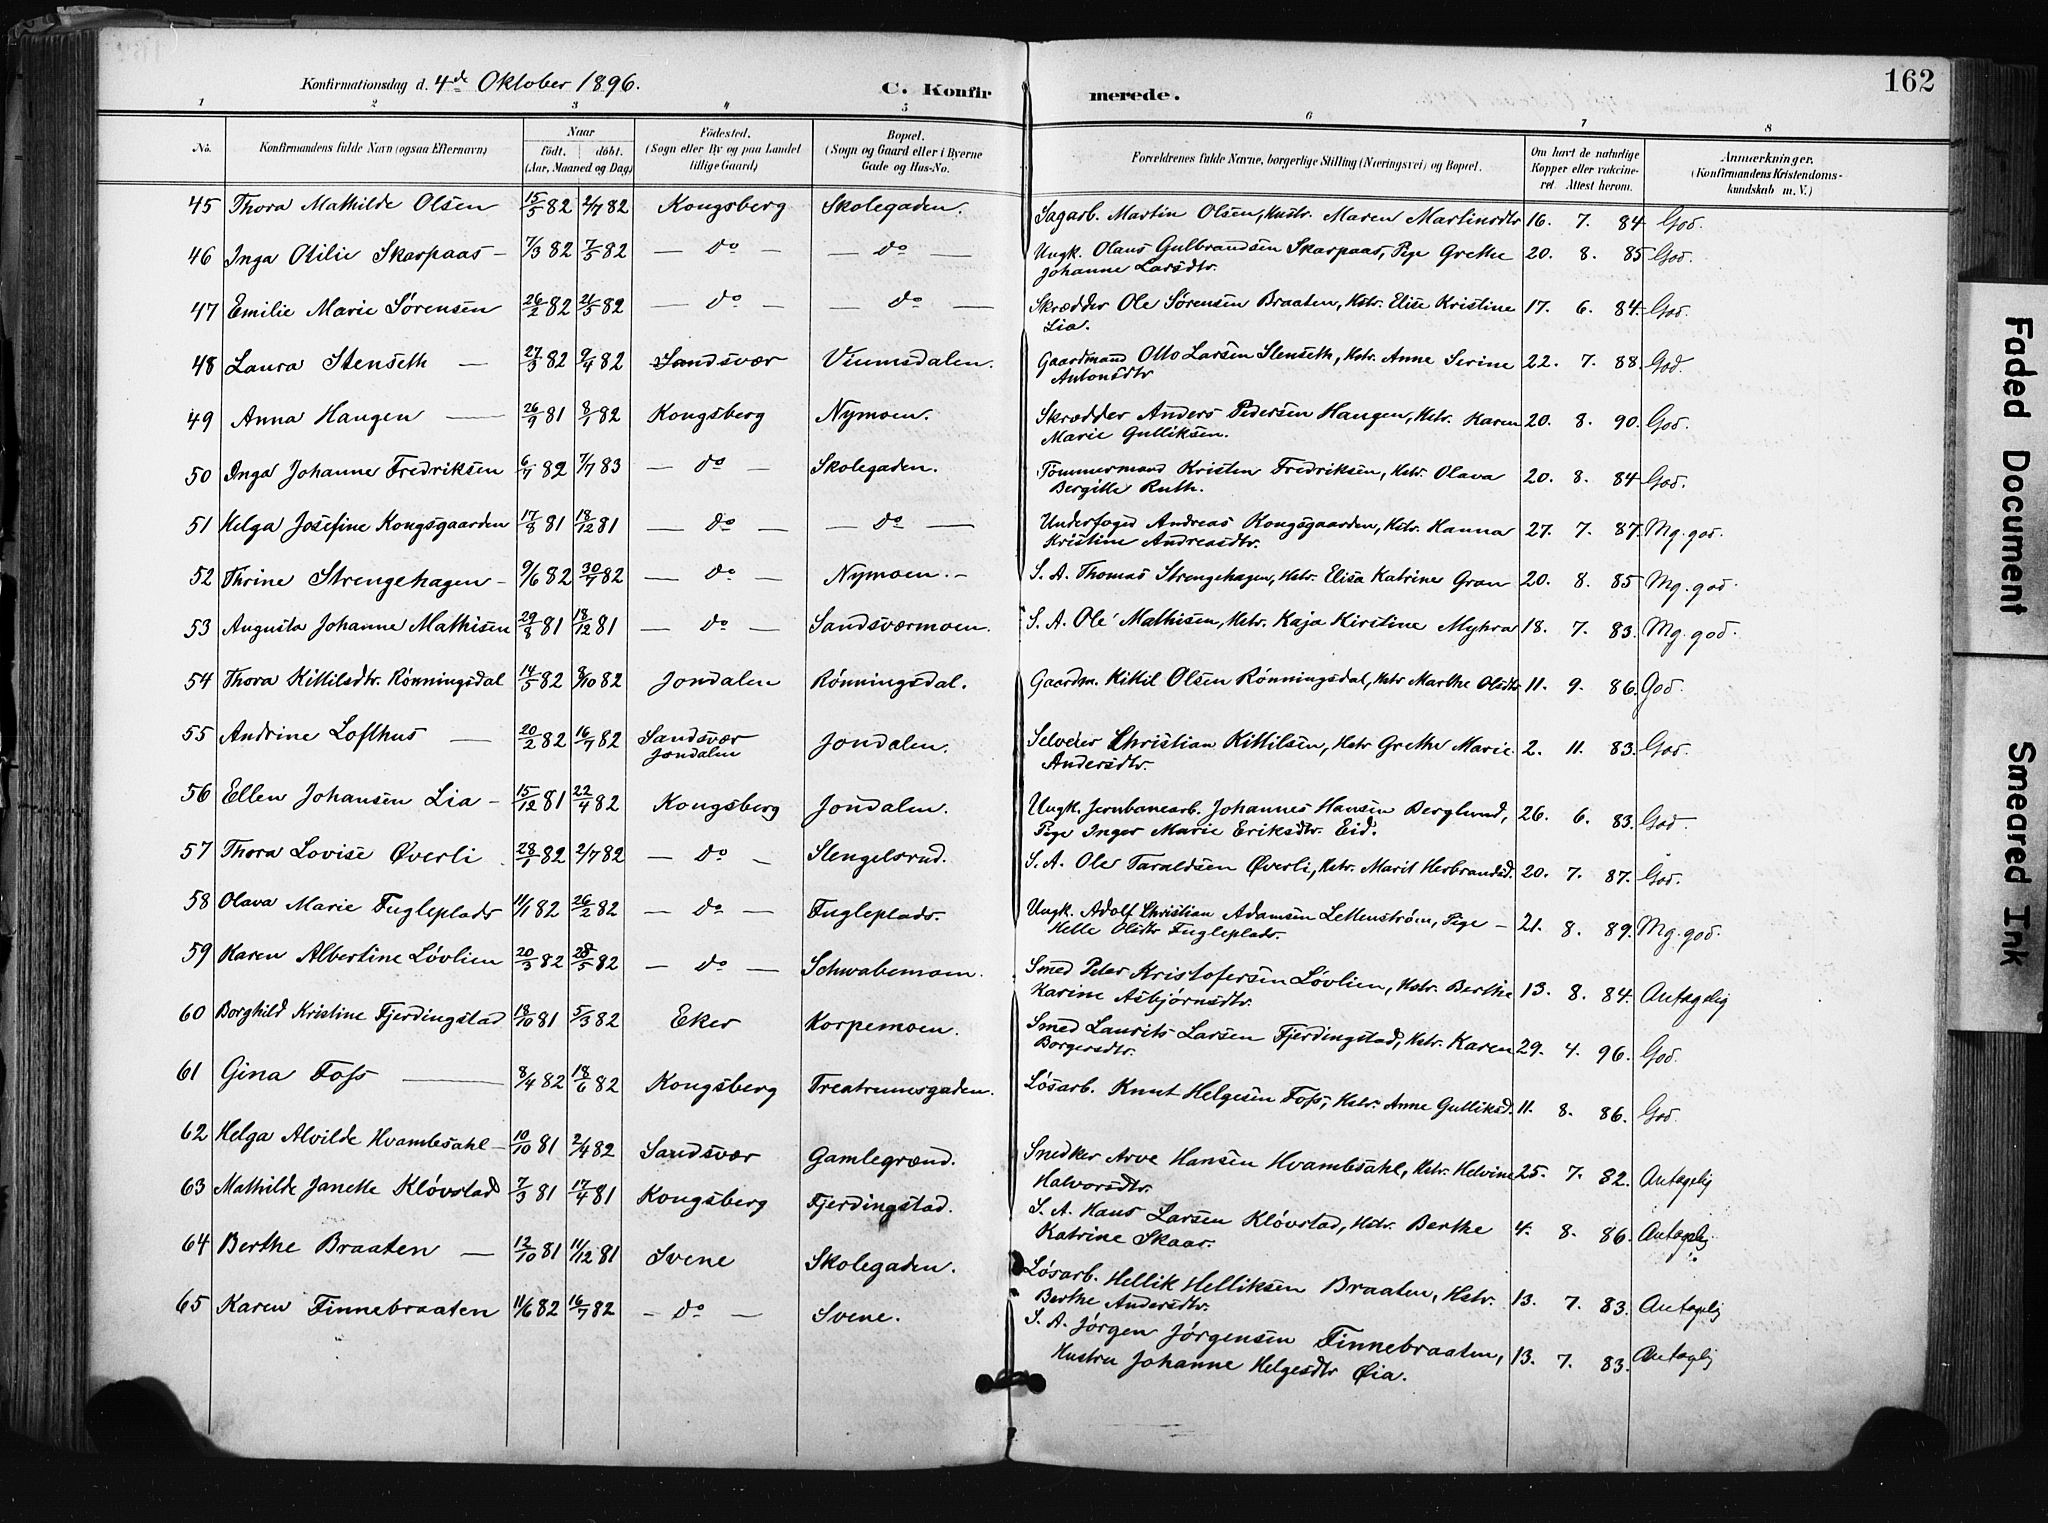 Konfirmationsdag d. 4de Oktober 1896.
C. Konfir merede.
162
1 2 3 4 5 6 7 8
No. Konfirmandens fulde Navn (ogsaa Efternavn) Naar født. døbt. (Aar, Maaned og Dag) Fødested. (Sogn eller By og paa Landet tillige Gaard) Bopæl. (Sogn og Gaard eller i Byerne Gade og Hus-No. Forældrenes fulde Navne, borgerlige Stilling (Næringsvei) og Bopæl. Om havt de naturlige Kopper eller vakcineret. Attest herom. Anmærkninger. (Konfirmandens Kristendomskundskab m. V.)
45 Thora Mathilde Olsen 15/5 82 2/7 82 Kongsberg Skolegaden. Sagarb. Martin Olsen, Hustr. Maren Martinsdtr 16. 7. 84 God.
46 Inga Otilie Skarpaas – 7/3 82 7/5 82 — do — — do — Ungk. Olaus Gulbrandsen Skarpaas, Pige Grethe 20. 8. 85 God.
Johanne Larsdtr.
47 Emilie Marie Sørensen 26/2 82 21/5 82 — do — — do — Skrædder Ole Sørensen Braaten, Hstr. Elise Kristine 17. 6. 84 God.
Lia.
48 Laura Stenseth — 27/3 82 9/4 82 Sandsvær Viumsdalen. Gaardmand Otto Larsen Stenseth, Hstr. Anne Serine 22. 7. 88. God.
Antonsdtr
49 Anna Haugen — 26/9 81 8/1 82 Kongsberg Nymoen. Skrædder Anders Pedersen Haugen, Hstr. Karen 20. 8. 90. God.
Marie Gulliksen.
50 Inga Johanne Fredriksen 6/7 82 7/7 83 — do — Skolegaden. Tømmermand Kristen Fredriksen, Hstr. Olava 20. 8. 84 God.
Bergitte Ruth.
51 Helga Josefine Kongsgaarden 17/8 81 18/12 81 — do — — do — Underfoged Andreas Kongsgaarden, Hstr. Hanna 27. 7. 87. Mg. god.
Kristine Andreasdtr.
52 Thrine Strengehagen – 9/6 82 30/7 82 — do — Nymoen. – S. A. Thomas Strengehagen, Hstr. Elisa Katrine Gran 20. 8. 85 Mg. god.
53 Augusta Johanne Mathisen 29/8 81 18/12 81 — do — Sandsværmoen. S. A. Ole Mathisen, Hstr. Kaja Kirstine Myhra 18. 7. 83. Mg. god.
54 Thora Kittilsdtr. Rønningsdal 14/5 82 8/10 82 Jondalen Rønningsdal. Gaardm. Kittil Olsen Rønningsdal, Hstr Marthe Olsdtr 11. 9. 86. God.
55 Andrine Lofthus — 20/2 82 16/7 82 Sandsvær Jondalen Jondalen. Selveier Christian Kittilsen, Hstr Grethe Marie 2. 11. 83. God.
Andersdtr.
56 Ellen Johansen Lia – 15/12 81 22/4 82 Kongsberg Jondalen. Ungk. Jernbanearb. Johannes Hansen Berglund, 26. 6. 83. God.
Pige Inger Marie Eriksdtr. Eid.
57 Thora Lovise Øverli 28/1 82 2/7 82 — do — Stengelsrud. S. A. Ole Taraldsen Øverli, Hstr. Marit Herbrandsd. 20. 7. 87. God.
58 Olava Marie Fugleplads 11/1 82 26/2 82 — do — Fugleplads. Ungk. Adolf Christian Adamsen Lettenstrøm, Pige – 21. 8. 89. Mg. god.
Helle Olsdtr Fugleplads.
59 Karen Albertine Løvlien 20/3 82 28/5 82 — do — Schwabemoen. Smed Peter Kristofersen Løvlien, Hstr. Berthe 13. 8. 84. Antagelig
Karine Asbjørnsdtr.
60 Borghild Kristine Fjerdingstad 18/10 81 5/3 82 Eker Korpemoen. Smed Laurits Larsen Fjerdingstad, Hstr. Karen 29. 4. 96. God.
Borgersdtr.
61 Gina Foss — 8/4 82 18/6 82 Kongsberg Treatrumsgaden. Løsarb. Knut Helgesen Foss, Hstr. Anne Gulliksd. 11. 8. 86. God.
62 Helga Alvilde Hvambsahl – 10/10 81 2/4 82 Sandsvær Gamlegrænd. Snedker Arve Hansen Hvambsahl, Hstr. Helvine 25. 7. 82. Antagelig
Halvorsdtr.
63 Mathilde Janette Kløvstad 7/3 81 17/4 81 Kongsberg Fjerdingstad. S. A. Hans Larsen Kløvstad, Hstr. Berthe 4. 8. 86. Antagelig.
Katrine Skaar.
64 Berthe Braaten — 12/10 81 11/12 81 Svene Skolegaden. Løsarb. Hellik Helliksen Braaten, Hstr. 13. 7. 83. Antagelig
Berthe Andersdtr.
65 Karen Finnebraaten 11/6 82 16/7 82 – do – Svene. S. A. Jørgen Jørgensen Finnebraaten, 13. 7. 83. Antagelig
Hustru Johanne Helgesdtr Øia.
Faded Document
Smeared Ink